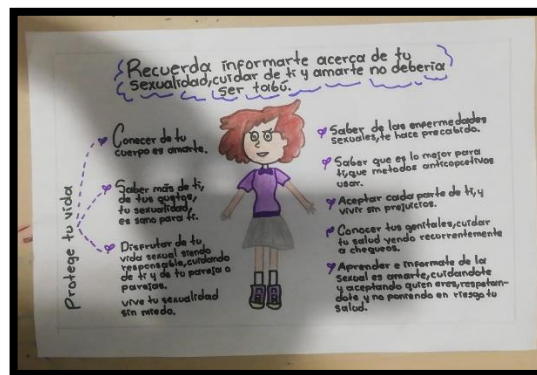 Recuerda informarte acerca de tu
sexualidad, cuidar de ti y amarte no debería
ser tabú.
Protege tu vida
Conocer de tu
cuerpo es amarte.
Saber más de ti,
de tus gustos,
tu sexualidad,
es sano para ti.
Disfrutar de tu
vida sexual siendo
responsable, cuidando
de ti y de tu pareja o
parejas.
vive tu sexualidad
sin miedo.
Saber de las enfermedades
sexuales, te hace precabido.
Saber que es lo mejor para
ti, que metodos anticopcetivos
usar.
Aceptar cada parte de ti, y
vivir sin prejuicios.
Conocer tus genitales, cuidar
tu salud yendo recorrentemente
a chequeos.
Aprender e informate de la
sexual es amarte, cuidandote
y aceptando quien eres, respetan-
dote y no poniendo en riesgo tu
salud.